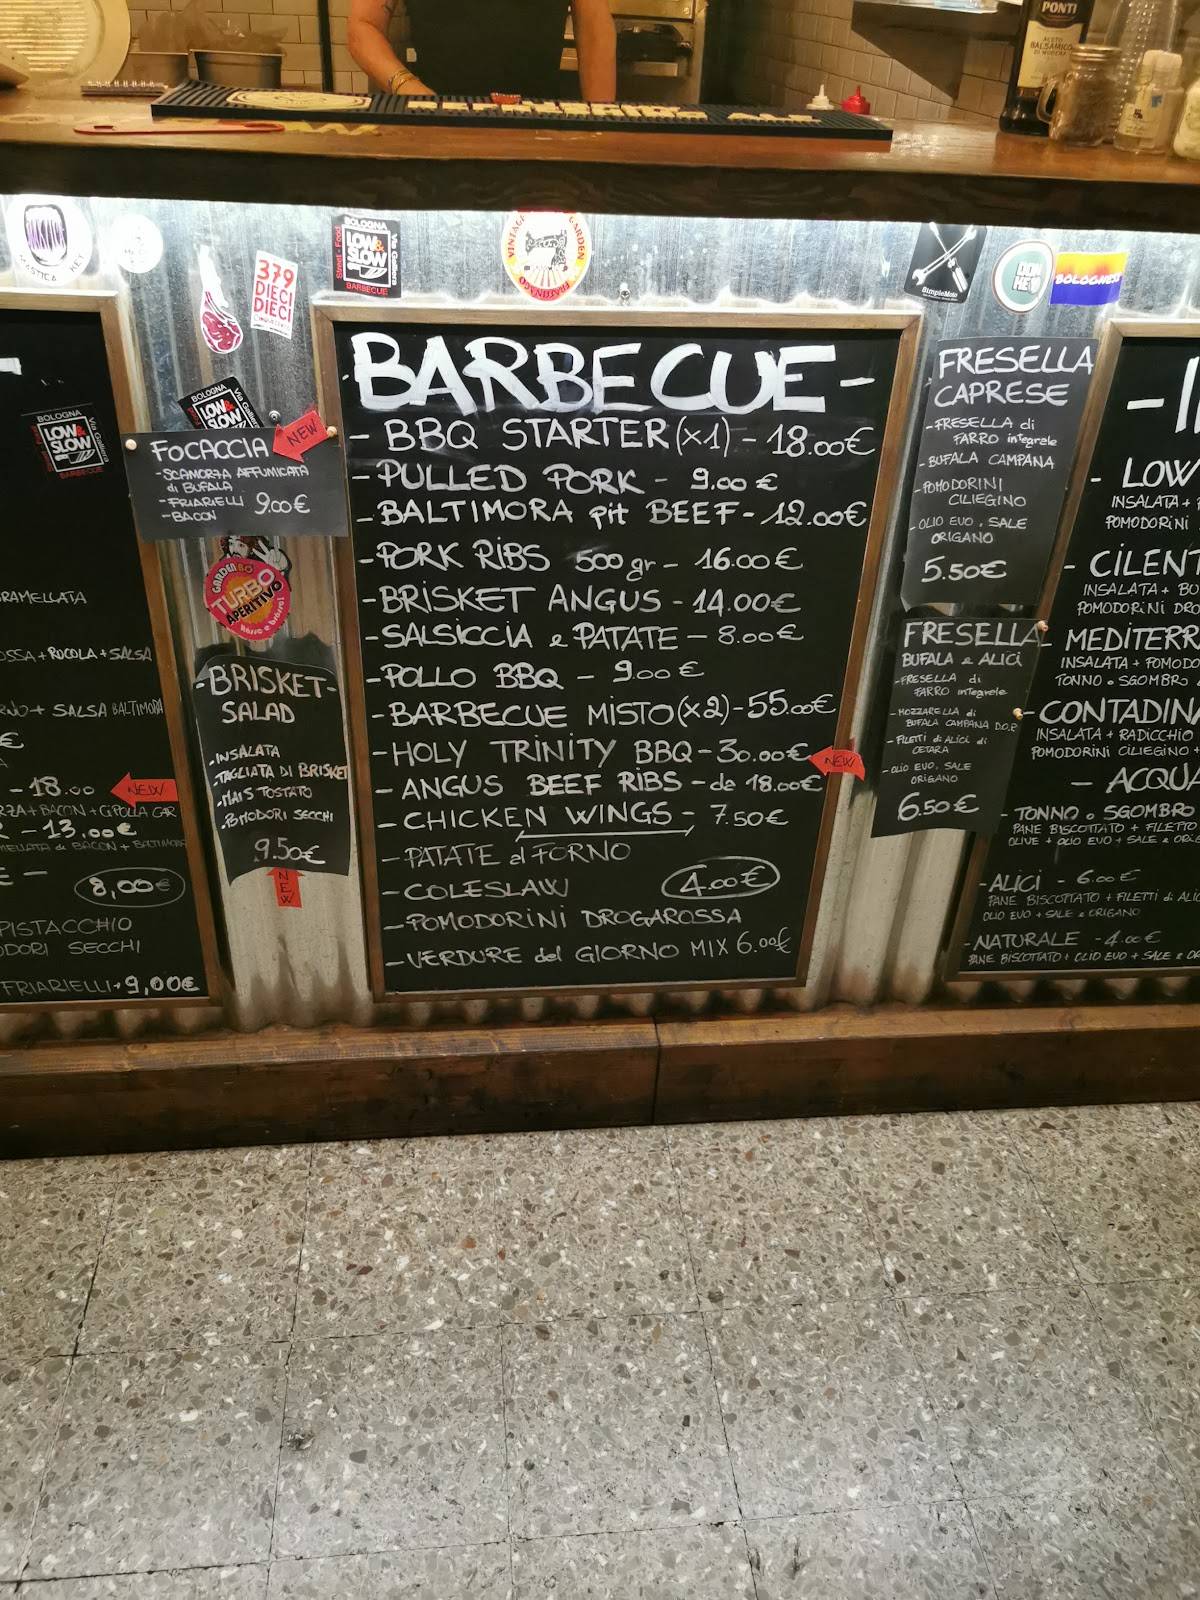 PONTI
ACETO
BALSAMICO
DI MODENA
MASTICA
379
DIECI
DIECI
BOLOGNA
Street - Food
LOW&
SLOW
Via Galliera
BARBECUE
VINTAGE
GARDEN
SimpleMoto
BOLOGNESE
BOLOGNA
LOW&
SLOW
Via Galliera
BOLOGNA
LOW&
SLOW
Via Galliera
BARBECUE
ARAMELLATA
OSSA + RUCOLA + SALSA
RNO + SALSA BALTIMORA
€
- 18.00
NEW
RZA + BACON + CIPOLLA CAR
- 13.00€
MELLATA di BACON + BALTIMORA
8,00€
PISTACCHIO
ODORI SECCHI
FRIARIELLI - 9,00€
FOCACCIA
NEW
- SCAMORZA AFFUMICATA
di BUFALA
- FRIARIELLI
- BACON
9.00€
GARDENBO
TURBO
APERITIVO
- BRISKET -
SALAD
- INSALATA
- TAGLIATA DI BRISKET
- MAIS TOSTATO
- POMODORI SECCHI
9.50€
NEW
- BARBECUE -
- BBQ STARTER (x1) - 18.00€
- PULLED PORK - 9.00€
- BALTIMORA pit BEEF - 12.00€
- PORK RIBS 500gr - 16.00€
- BRISKET ANGUS - 14.00€
- SALSICCIA e PATATE - 8.00€
- POLLO BBQ - 9.00€
- BARBECUE MISTO (x2) - 55.00€
- HOLY TRINITY BBQ - 30.00€
NEW
- ANGUS BEEF RIBS - da 18.00€
- CHICKEN WINGS - 7.50€
- PATATE al FORNO
- COLESLAW
4.00€
- POMODORINI DROGAROSSA
- VERDURE del GIORNO MIX 6.00€
FRESELLA
CAPRESE
- FRESELLA di
FARRO integrale
- BUFALA CAMPANA
- POMODORINI
CILIEGINO
- OLIO EVO, SALE
ORIGANO
5.50€
FRESELLA
BUFALA e ALICI
- FRESELLA di
FARRO integrale
- MOZZARELLA di
BUFALA CAMPANA D.O.P.
- FILETTI di ALICI di
CETARA
- OLIO EVO, SALE
ORIGANO
6.50€
- LOW
INSALATA +
POMODORINI
- CILENT
INSALATA + BO
POMODORINI DRO
- MEDITERR
INSALATA + POMODO
TONNO o SGOMBRO
- CONTADINA
INSALATA + RADICCHIO
POMODORINI CILIEGINO +
- ACQUA
- TONNO o SGOMBRO
PANE BISCOTTATO + FILETTO
OLIVE + OLIO EVO + SALE e ORIG
- ALICI - 6.00€
PANE BISCOTTATO + FILETTI di ALIC
OLIO EVO + SALE e ORIGANO
- NATURALE - 4.00€
PANE BISCOTTATO + OLIO EVO + SALE e OR